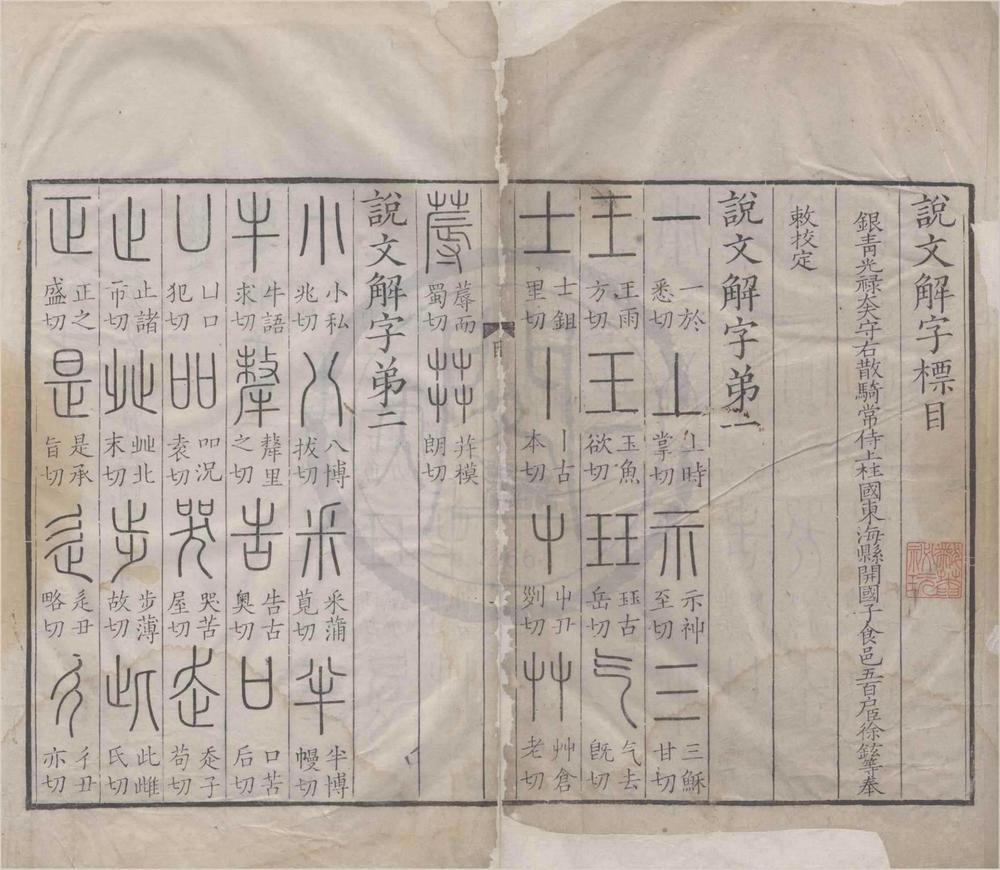 說文解字標目
銀青光祿大夫守右散騎常侍上柱國東海縣開國子食邑五百戶臣徐鉉等奉
敕挍定
說文解字弟一
一 一於悉切 丄 丄時掌切 示 示神至切 三 三穌甘切
王 王雨方切 王 玉魚欲切 玨 玨古岳切 气 气去旣切
士 士鉏里切 丨 丨古本切 屮 屮丑列切 艸 艸倉老切
蓐 蓐而蜀切 茻 茻模朗切
說文解字弟二
小 小私兆切 八 八博拔切 釆 釆蒲莧切 半 半博幔切
牛 牛語求切 犛 犛里之切 告 告古奧切 口 口苦后切
凵 凵口犯切 吅 吅況袁切 哭 哭苦屋切 走 走子苟切
止 止諸市切 癶 癶北末切 步 步薄故切 此 此雌氏切
正 正之盛切 是 是承旨切 辵 辵丑略切 彳 彳丑亦切